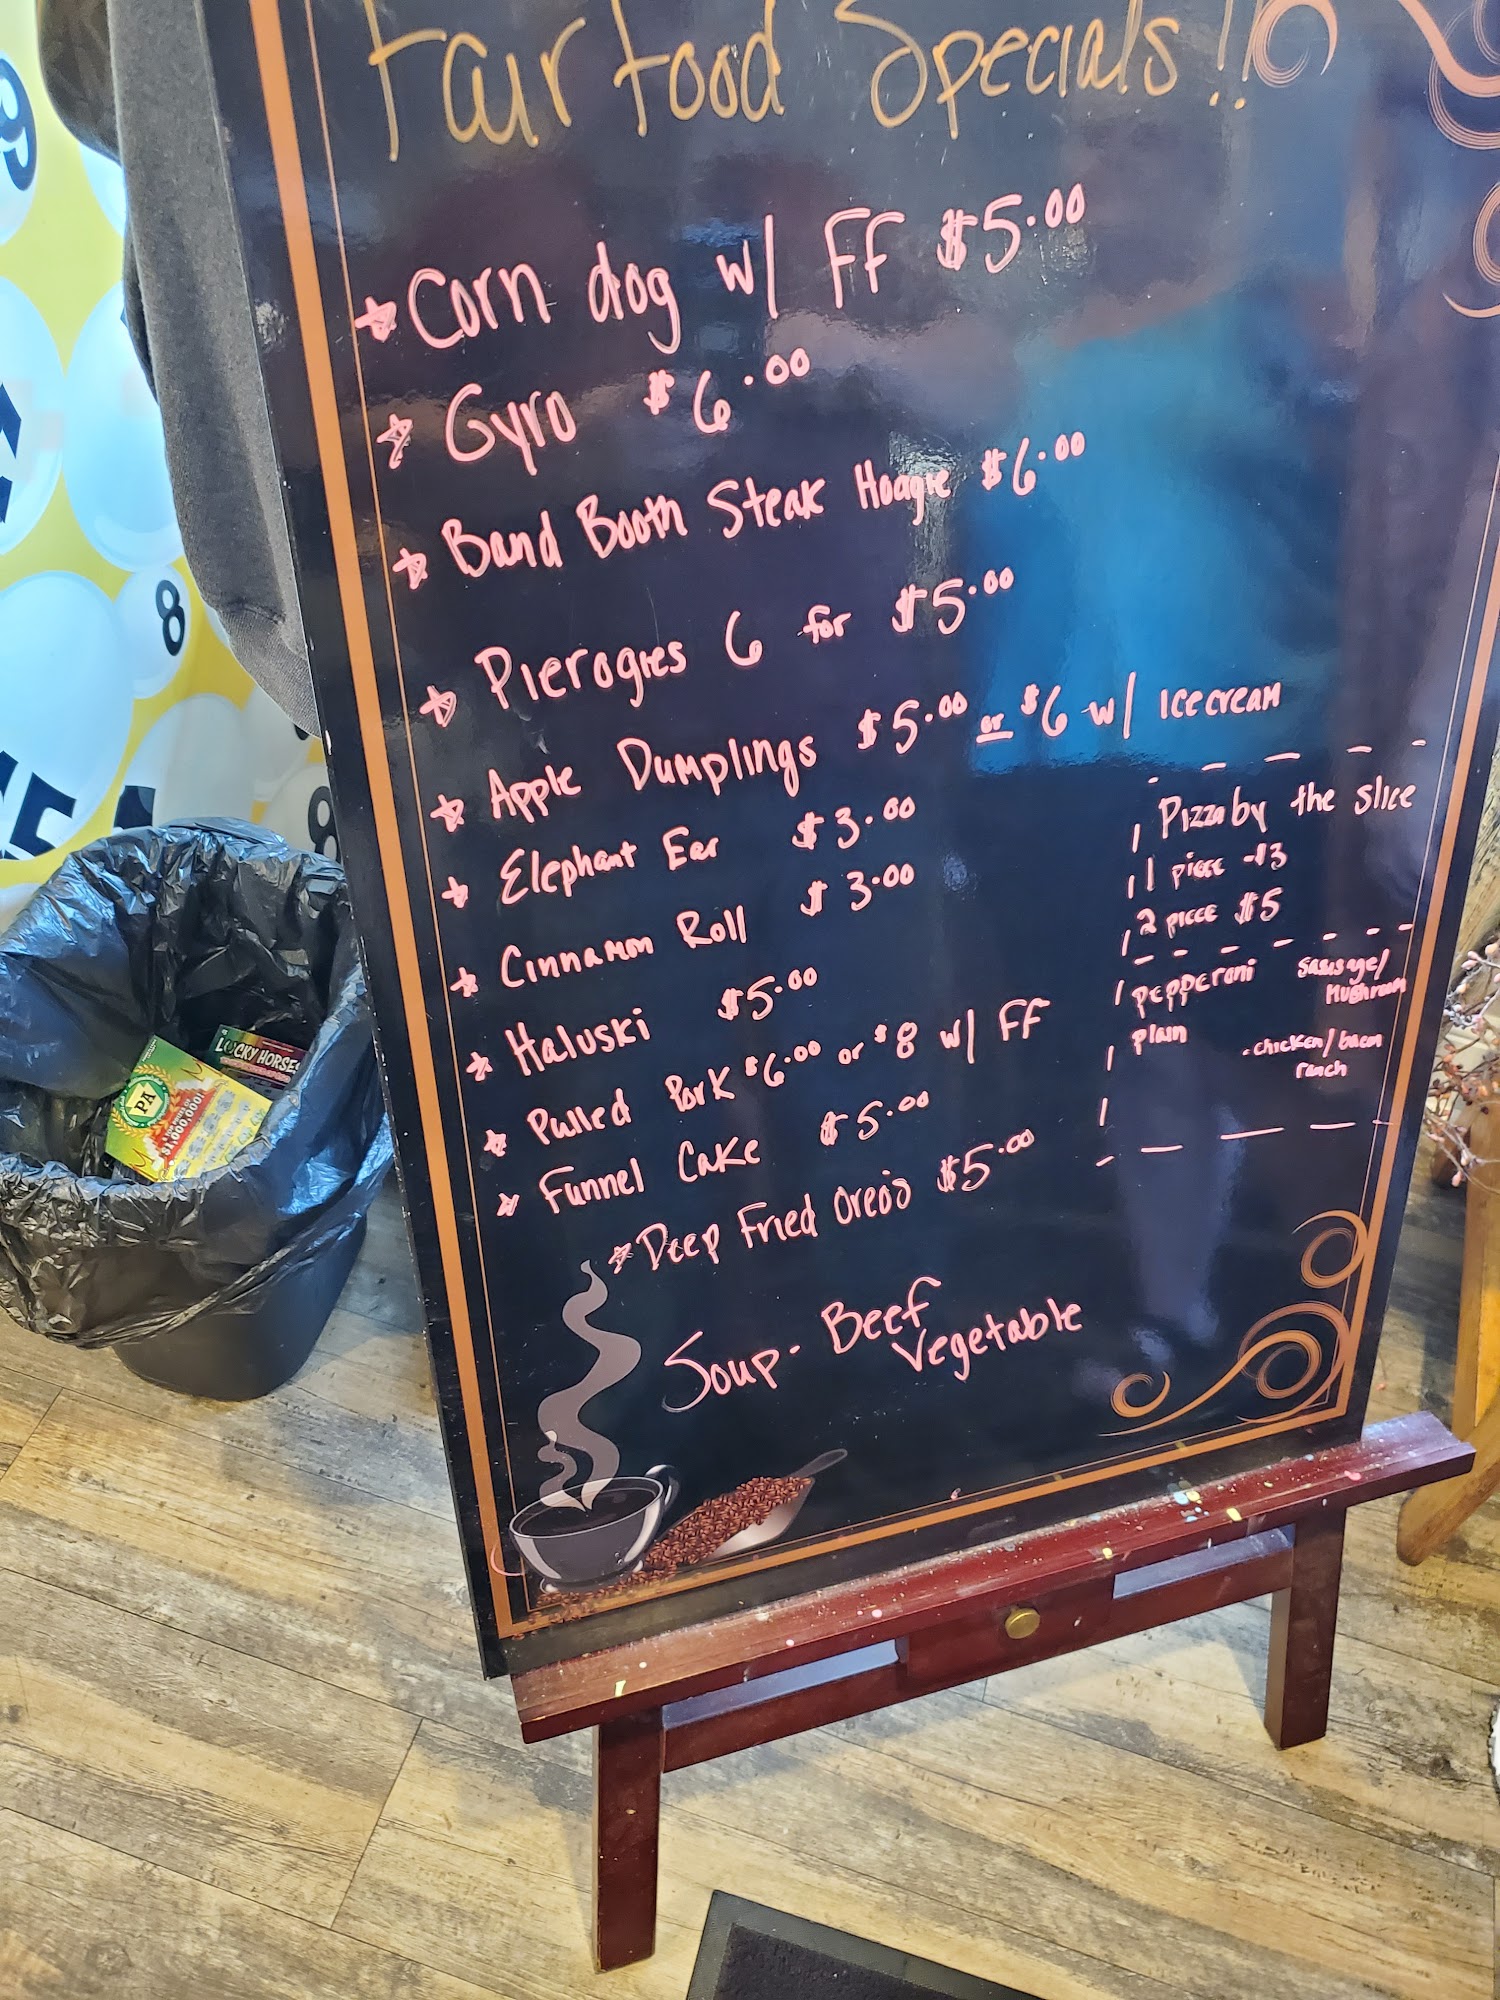 Fair Food Specials!!
☆ Corn dog w/ FF $5.00
☆ Gyro $6.00
☆ Band Booth Steak Hoagie $6.00
☆ Pierogies 6 for $5.00
☆ Apple Dumplings $5.00 or $6 w/ Icecream
☆ Elephant Ear $3.00
☆ Cinnamon Roll $3.00
☆ Haluski $5.00
☆ Pulled Pork $6.00 or $8 w/ FF
☆ Funnel Cake $5.00
☆ Deep Fried Oreo's $5.00
Soup - Beef
Vegetable
Pizza by the slice
1 piece - $3
2 piece $5
pepperoni
plain
Sausage/
Mushroom
- chicken/bacon
ranch
LUCKY HORSES
PA
$1,000,000!
8
8
9